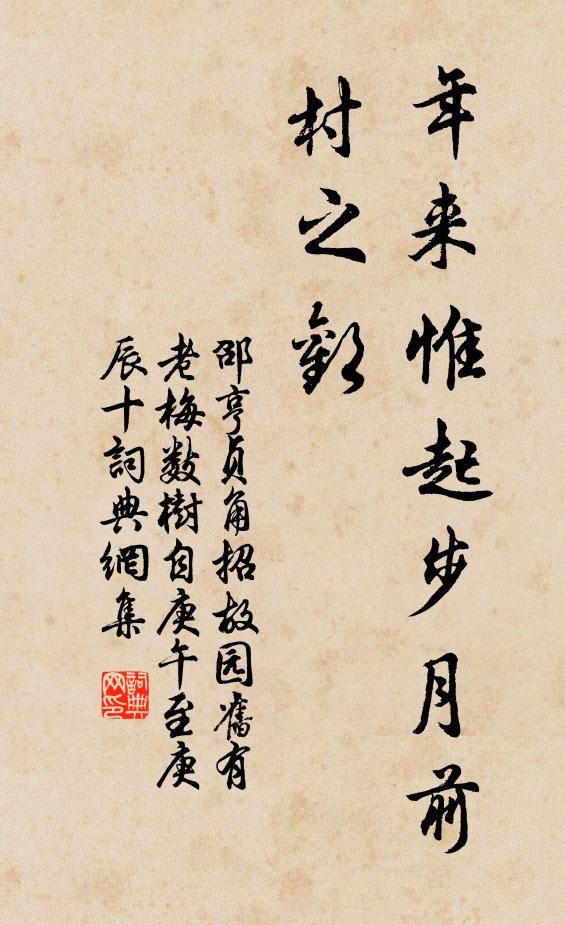 年来惟起步月前
村之歡
邵亨貞角招故园舊有
老梅数樹自庚午至庚
辰十詞典網集
詞典
网印